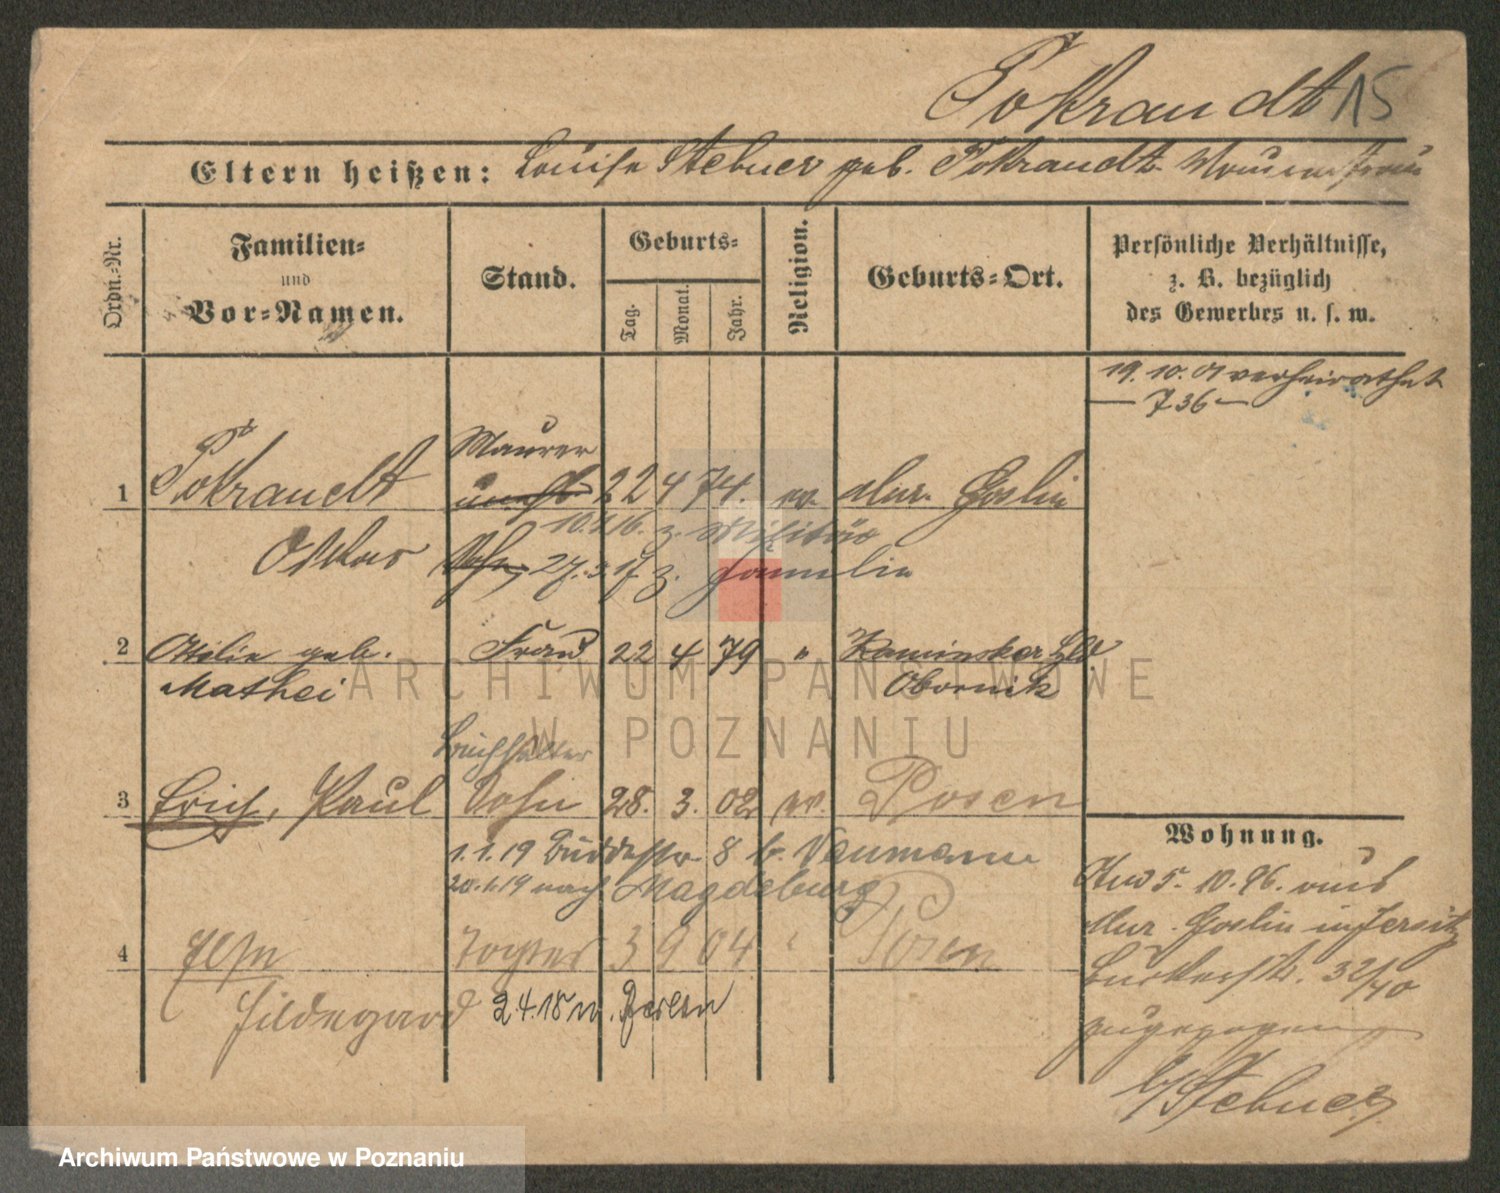 Pokrandt 15
Eltern heißen: Louise Stebner geb. Pokrandt
Ordn.-Nr.
Familien-
und
Vor-Namen.
Stand.
Geburts-
Tag.
Monat.
Jahr.
Religion.
Geburts-Ort.
Persönliche Verhältnisse,
z. B. bezüglich
des Gewerbes u. s. w.
19. 10. 01 verheirathet
— 736 —
Maurer
1 Pokrandt 22 4 74. ev. Mur. Goslin
10. 1. 16. z. Militär
Oskar Sohn, 27. 3. 17 z. Familie
2 Ottilie geb. Frau 22 4 79 " Kaminsker Hld
Mathei Obornik
Buchhalter
3 Erich, Paul Sohn 28. 3. 02 ev. Posen
1. 1. 19 Buddestr. 8 b. Naumann
20. 1. 19 nach Magdeburg
4 Else Tochter 3 9 04 " Posen
Hildegard 24. 18 n. Berlin
Wohnung.
5. 10. 96. aus
Mur. Goslin in Jersitz
32/40
zugezogen
b/Stebner
ARCHIWUM PAŃSTWOWE
W POZNANIU
Archiwum Państwowe w Poznaniu